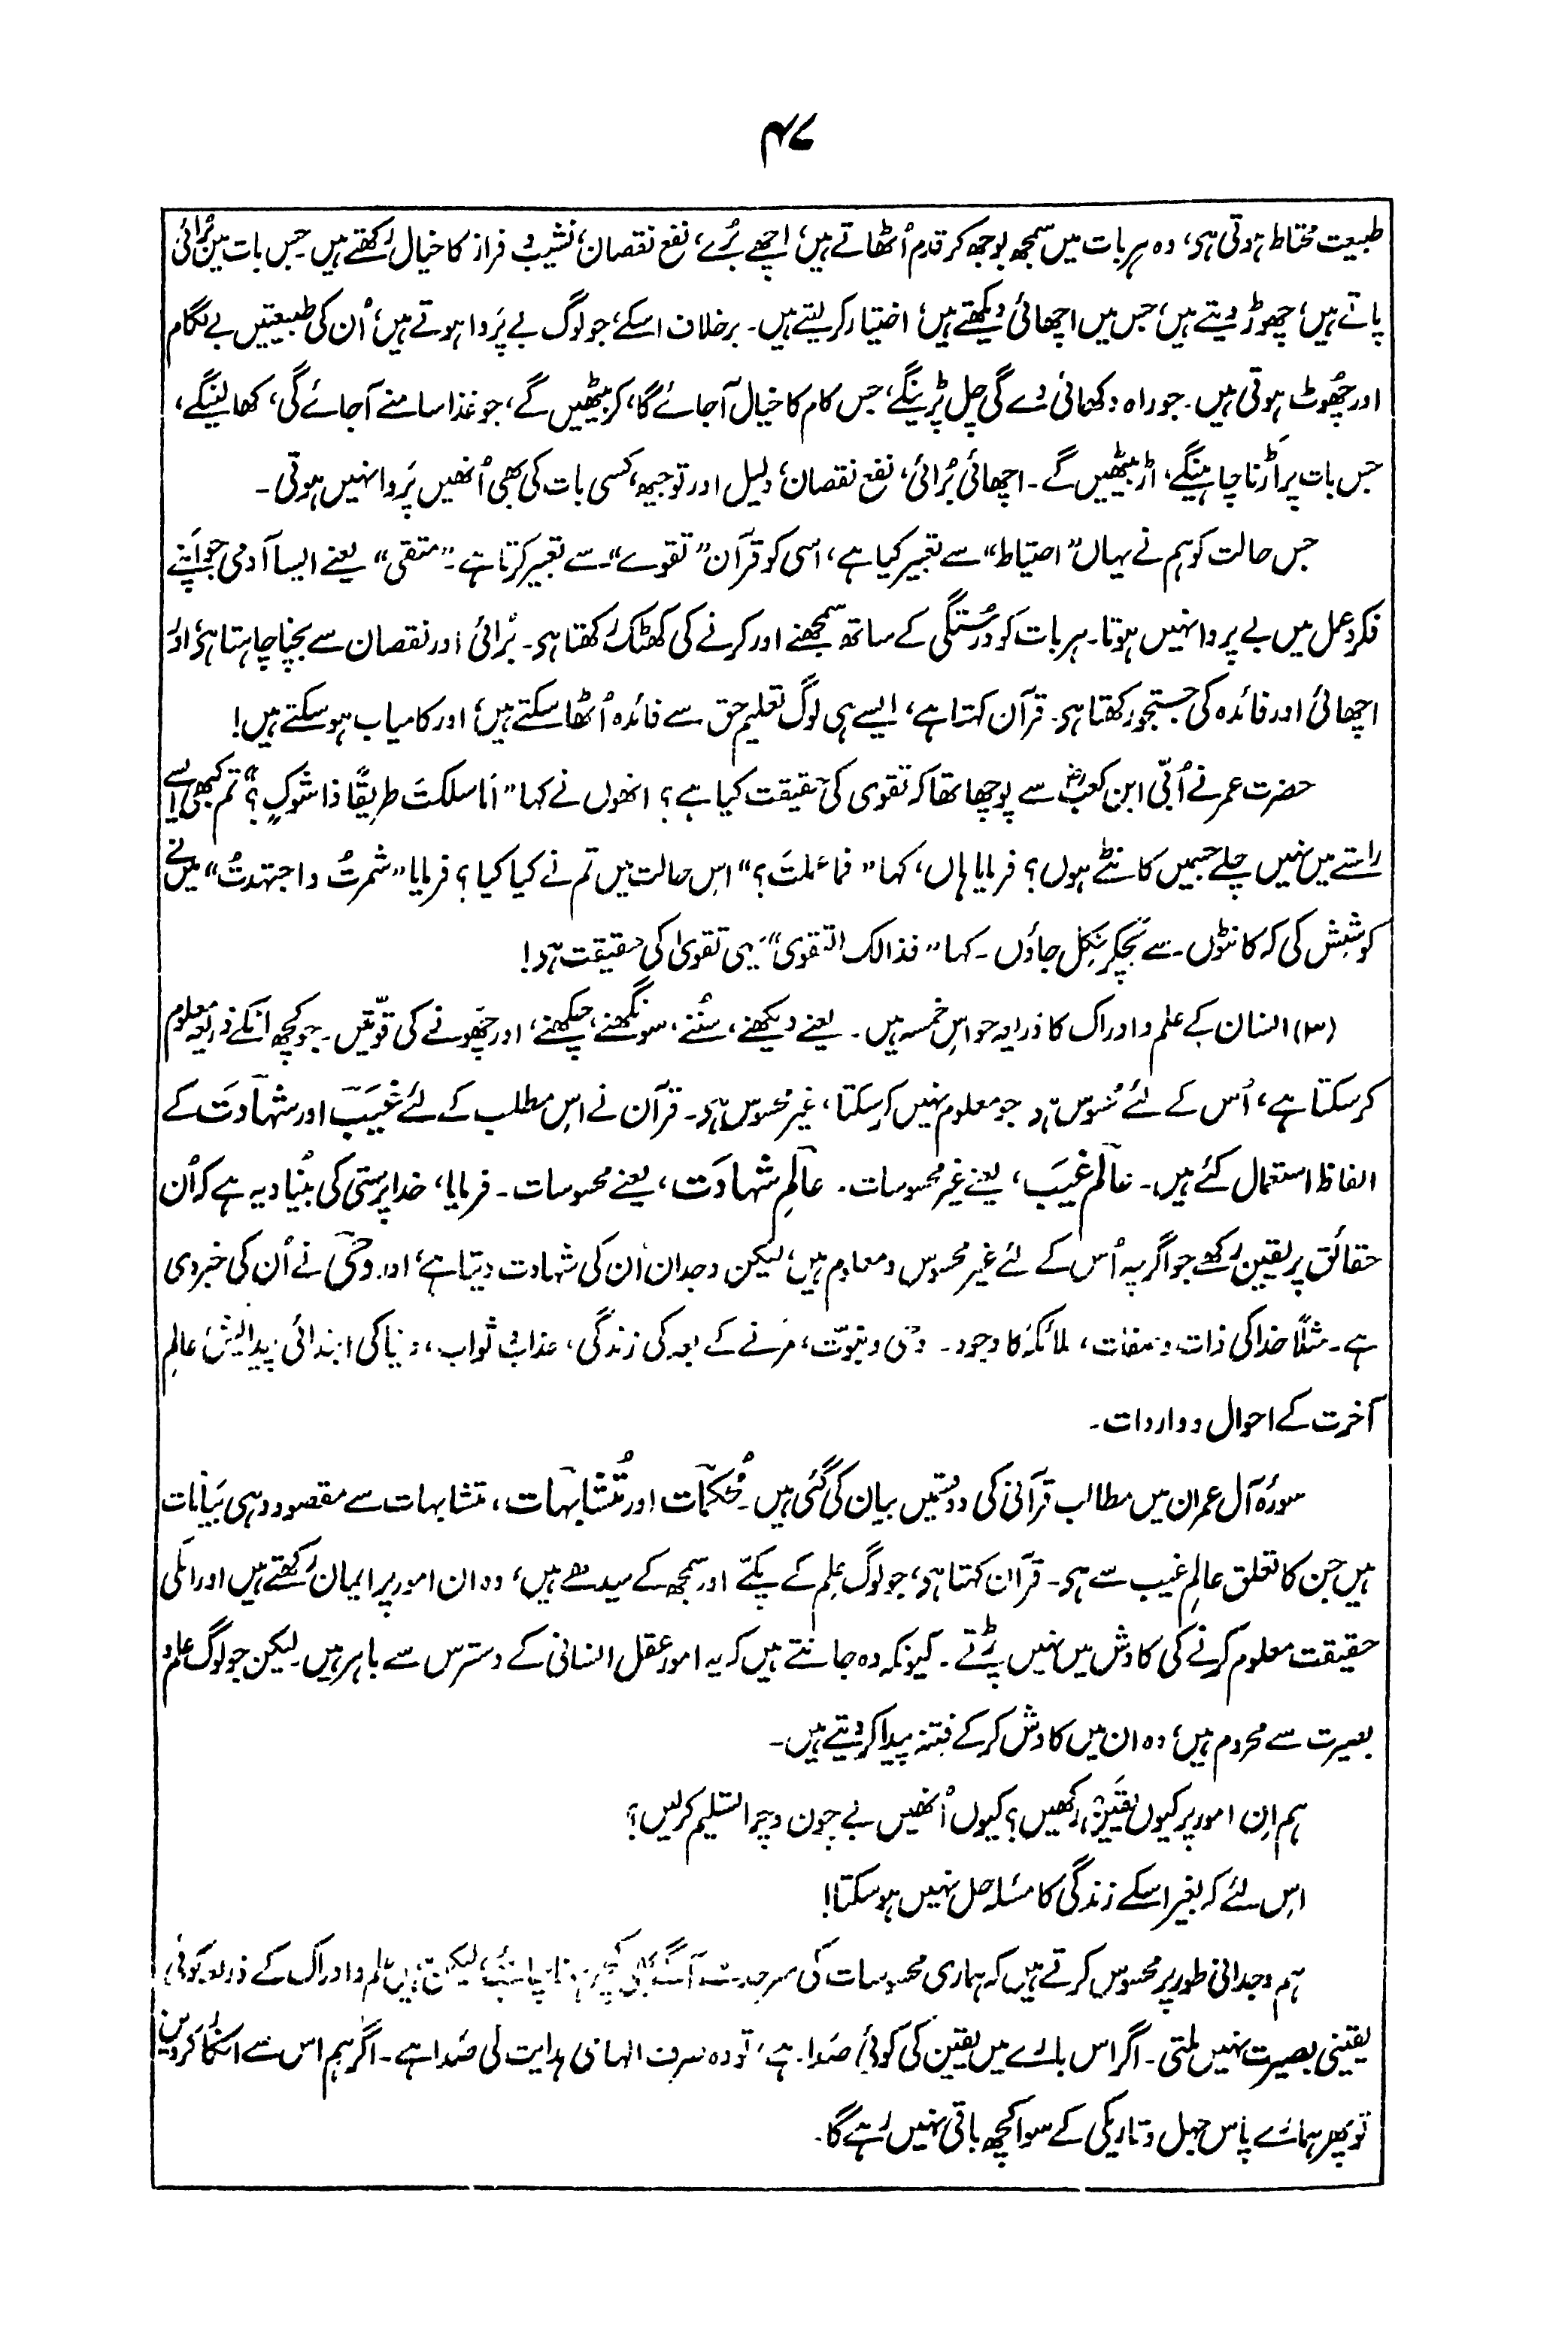 ۴۷
طبیعت محتاط ہوتی ہی، وہ ہر بات میں سمجھ بوجھ کر قدم اُٹھاتے ہیں، اچھے بُرے، نفع نقصان، نشیب و فراز کا خیال رکھتے ہیں۔ جس بات میں بُرائی
پاتے ہیں، چھوڑ دیتے ہیں، جس میں اچھائی دیکھتے ہیں، اختیار کر لیتے ہیں۔ برخلاف اسکے، جو لوگ بے پَروا ہوتے ہیں، اُن کی طبیعتیں بے لگام
اور چھُوٹ ہوتی ہیں۔ جو راہ دکھائی دے گی چل پڑینگے، جس کام کا خیال آجائے گا، کر بیٹھیں گے، جو غذا سامنے آجائے گی، کھا لینگے،
جس بات پر اَڑنا چاہینگے، اڑ بیٹھیں گے۔ اچھائی بُرائی، نفع نقصان، دلیل اور توجیہ، کسی بات کی بھی اُنھیں پَروا نہیں ہوتی۔
جس حالت کو ہم نے یہاں "احتیاط" سے تعبیر کیا ہے، اسی کو قرآن "تقوے" سے تعبیر کرتا ہے۔ "متقی" یعنے ایسا آدمی جو اپنے
فکر و عمل میں بے پروا نہیں ہوتا۔ ہر بات کو درُستگی کے ساتھ سمجھنے اور کرنے کی کھٹک رکھتا ہی۔ بُرائی اور نقصان سے بچنا چاہتا ہی، اور
اچھائی اور فائدہ کی جستجو رکھتا ہی۔ قرآن کہتا ہے، ایسے ہی لوگ تعلیم حق سے فائدہ اُٹھا سکتے ہیں، اور کامیاب ہو سکتے ہیں!
حضرت عمر نے اُبّی ابن کعبؓ سے پوچھا تھا کہ تقوی کی حقیقت کیا ہے؟ انھوں نے کہا "اَمَا سلکتَ طریقًا ذا شوکٍ؟" تم کبھی ایسے
راستے میں نہیں چلے جسمیں کانٹے ہوں؟ فرمایا ہاں، کہا "فما عملتَ؟" اس حالت میں تم نے کیا کیا؟ فرمایا "شمرتُ و اجتہدتُ" میں نے
کوشش کی کہ کانٹوں سے بچکر نِکل جاؤں۔ کہا "فذالک التقوی" یہی تقویٰ کی حقیقت ہی!
(۳) انسان کے علم و ادراک کا ذریعہ حواسِ خمسہ ہیں۔ یعنے دیکھنے، سُننے، سونگھنے، چکھنے، اور چھونے کی قوّتیں۔ جو کچھ انکے ذریعہ معلوم
کر سکتا ہے، اُس کے لئے محسوس ہی جو معلوم نہیں کر سکتا، غیر محسوس ہی۔ قرآن نے اس مطلب کے لئے غیَب اور شہادَت کے
الفاظ استعمال کئے ہیں۔ عالم غیَب، یعنے غیر محسوسات۔ عالمِ شہادَت، یعنے محسوسات۔ فرمایا، خدا پرستی کی بُنیاد یہ ہے کہ اُن
حقائق پر یقین رکھے جو اگرچہ اُس کے لئے غیر محسوس و معلوم ہیں، لیکن وجدان اُن کی شہادت دیتا ہے، اور وحی نے اُن کی خبر دی
ہے۔ مثلًا خدا کی ذات و صفات، ملائکہ کا وجود۔ وحی و نبوّت، مَرنے کے بعد کی زندگی، عذاب ثواب، دنیا کی ابتدائی پیدائش، عالمِ
آخرت کے احوال و واردات۔
سورۂ آل عمران میں مطالب قرآنی کی دو قسمیں بیان کی گئی ہیں۔ مُحکمات اور مُتشابہات، متشابہات سے مقصود وہی بیَانات
ہیں جن کا تعلق عالمِ غیب سے ہی۔ قرآن کہتا ہی، جو لوگ علم کے پکّے اور سمجھ کے سیدھے ہیں، وہ ان امور پر ایمان رکھتے ہیں اور انکی
حقیقت معلوم کرنے کی کاوش میں نہیں پڑتے۔ کیونکہ وہ جانتے ہیں کہ یہ امور عقل انسانی کے دسترس سے باہر ہیں۔ لیکن جو لوگ علم و
بصیرت سے محروم ہیں، وہ ان میں کاوش کر کے فتنہ پیدا کر دیتے ہیں۔
ہم اِن امور پر کیوں یقین رکھیں؟ کیوں اُنھیں بے چون و چرا تسلیم کر لیں؟
اس لئے کہ بغیر اسکے زندگی کا مسئلہ حل نہیں ہو سکتا!
ہم وجدانی طور پر محسوس کرتے ہیں کہ ہماری محسوسات کی سرحد سے آگے بھی کچھ ہونا چاہئے، لیکن ہمیں علم و ادراک کے ذریعہ کوئی
یقینی بصیرت نہیں ملتی۔ اگر اس بارے میں یقین کی کوئی صَدا ہے، تو وہ صرف الہامی ہدایت کی صَدا ہے۔ اگر ہم اس سے انکار کر دیں
تو پھر ہمارے پاس جہل و تاریکی کے سوا کچھ باقی نہیں رہے گا۔